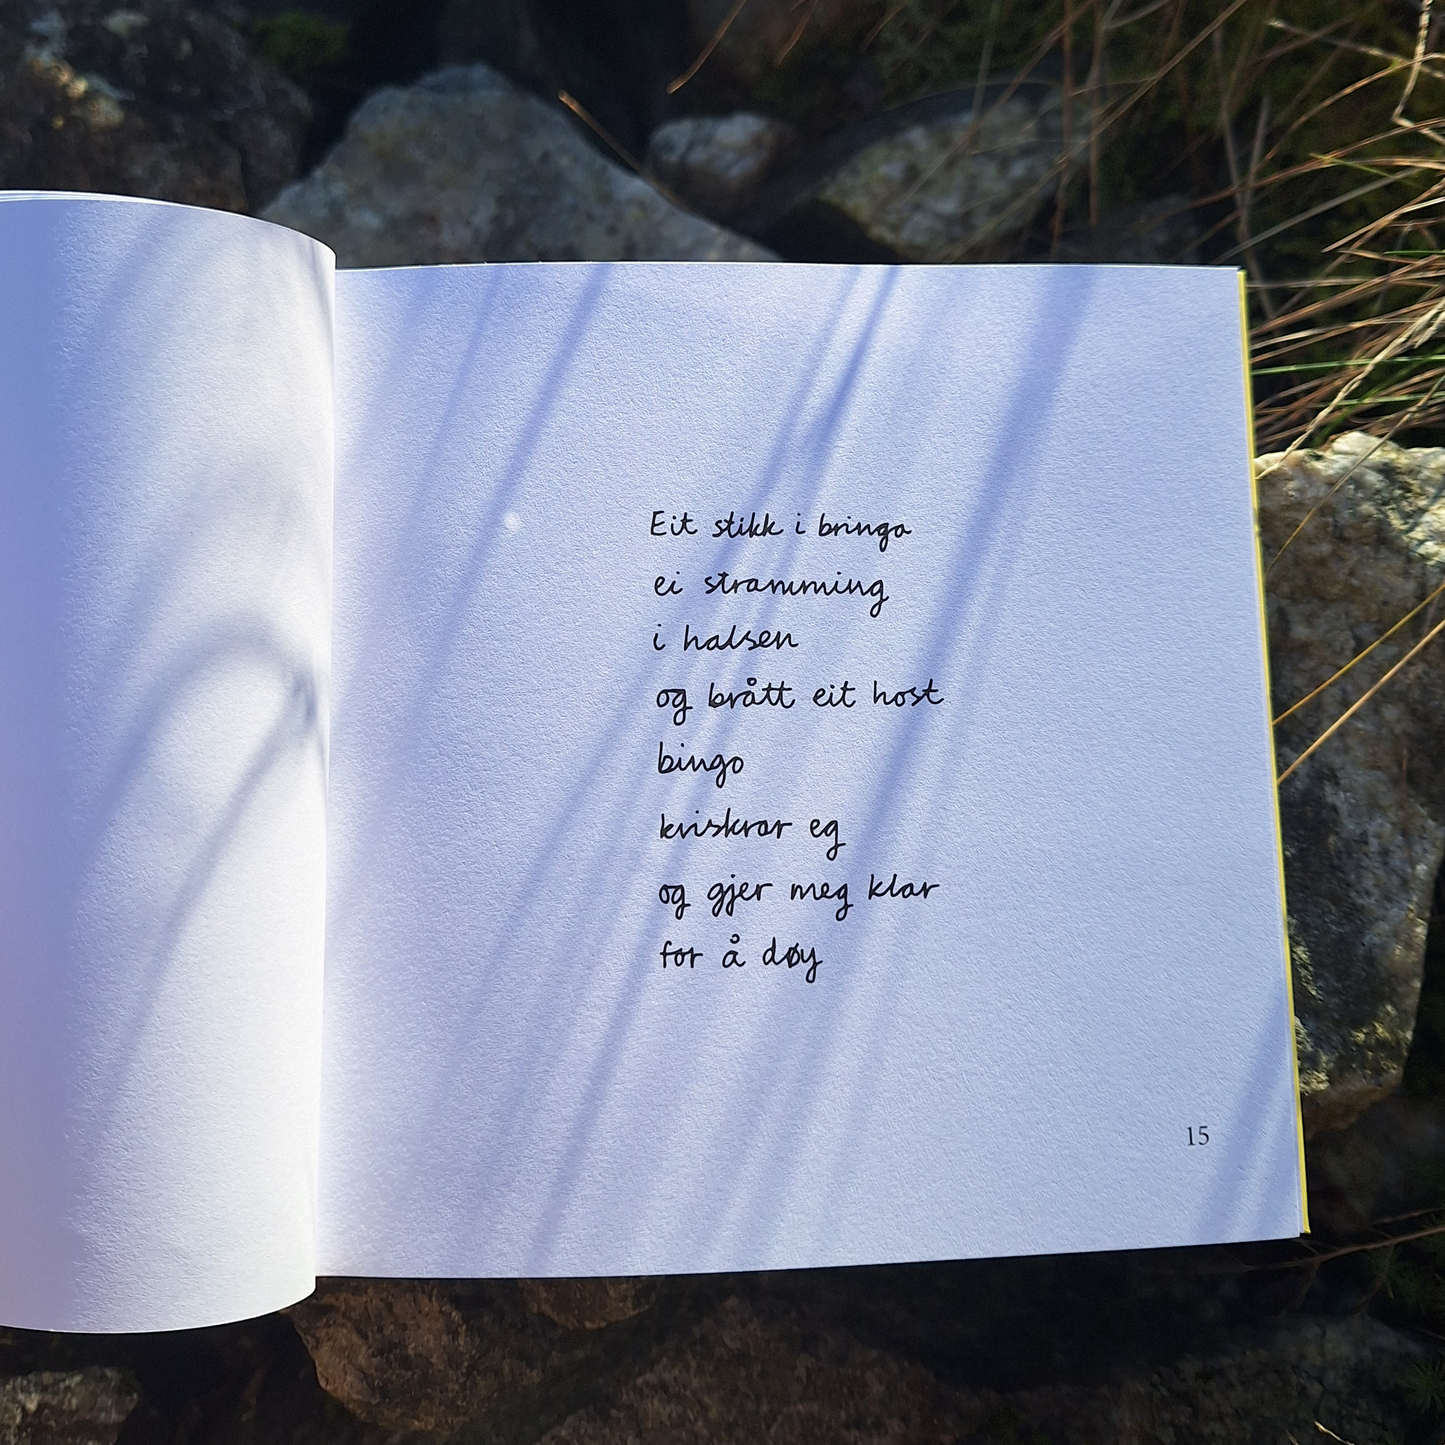 Eit stikk i bringa
ei stramming
i halsen
og brått eit host
bingo
kviskrar eg
og gjer meg klar
for å døy
15